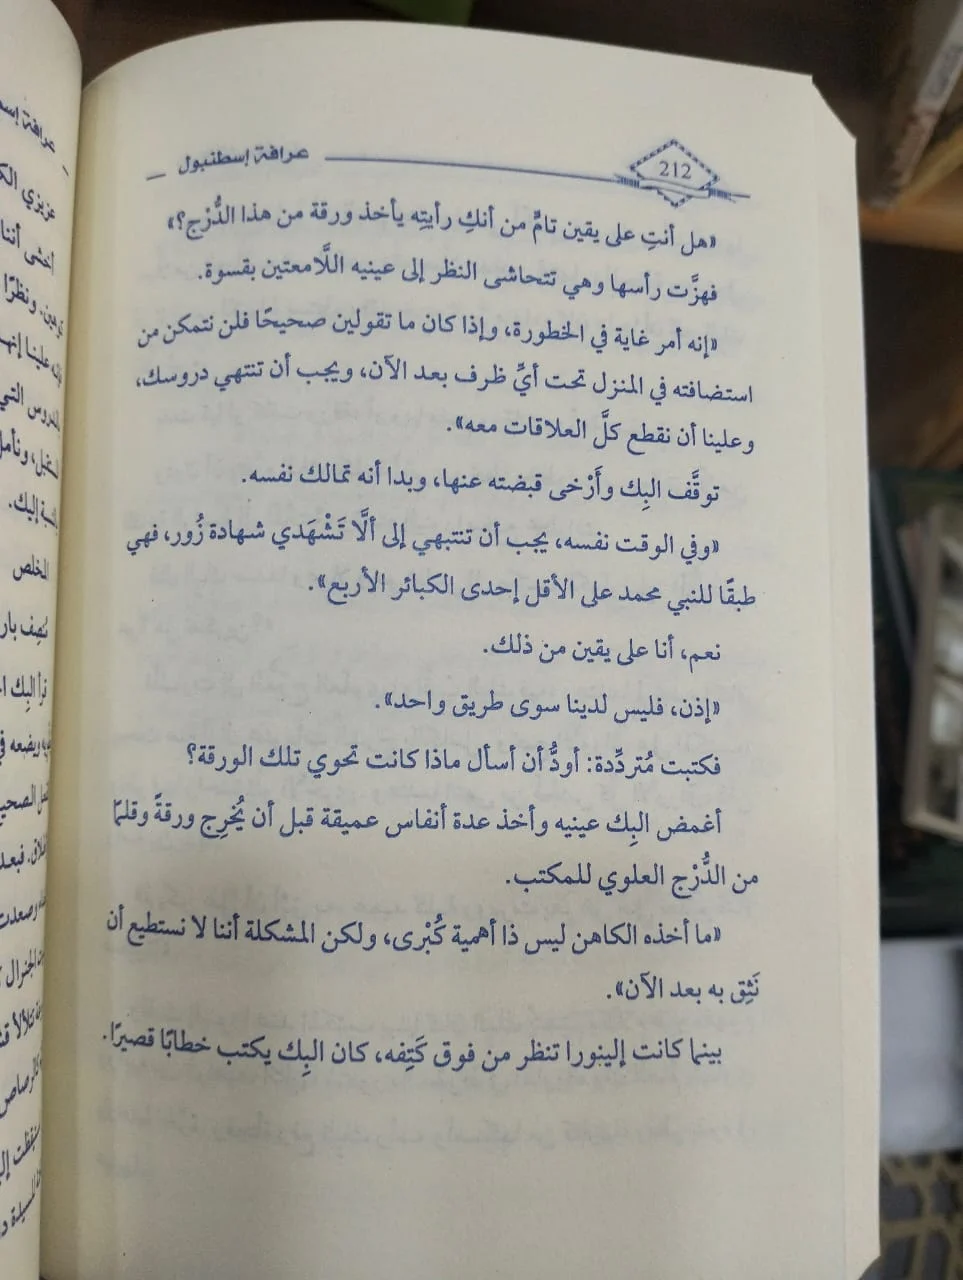 212
عرافة إسطنبول
«هل أنتِ على يقين تامٍّ من أنكِ رأيتِه يأخذ ورقة من هذا الدُّرْج؟»
فهزَّت رأسها وهي تتحاشى النظر إلى عينيه اللَّامعتين بقسوة.
«إنه أمر غاية في الخطورة، وإذا كان ما تقولين صحيحًا فلن نتمكن من
استضافته في المنزل تحت أيِّ ظرف بعد الآن، ويجب أن تنتهي دروسك،
وعلينا أن نقطع كلَّ العلاقات معه».
توقَّف البِك وأَرْخى قبضته عنها، وبدا أنه تمالك نفسه.
«وفي الوقت نفسه، يجب أن تنتبهي إلى ألَّا تَشْهَدي شهادة زُور، فهي
طبقًا للنبي محمد على الأقل إحدى الكبائر الأربع».
نعم، أنا على يقين من ذلك.
«إذن، فليس لدينا سوى طريق واحد».
فكتبت مُتردِّدة: أودُّ أن أسأل ماذا كانت تحوي تلك الورقة؟
أغمض البِك عينيه وأخذ عدة أنفاس عميقة قبل أن يُخرِج ورقةً وقلمًا
من الدُّرْج العلوي للمكتب.
«ما أخذه الكاهن ليس ذا أهمية كُبْرى، ولكن المشكلة أننا لا نستطيع أن
نَثِق به بعد الآن».
بينما كانت إلينورا تنظر من فوق كَتِفه، كان البِك يكتب خطابًا قصيرًا.